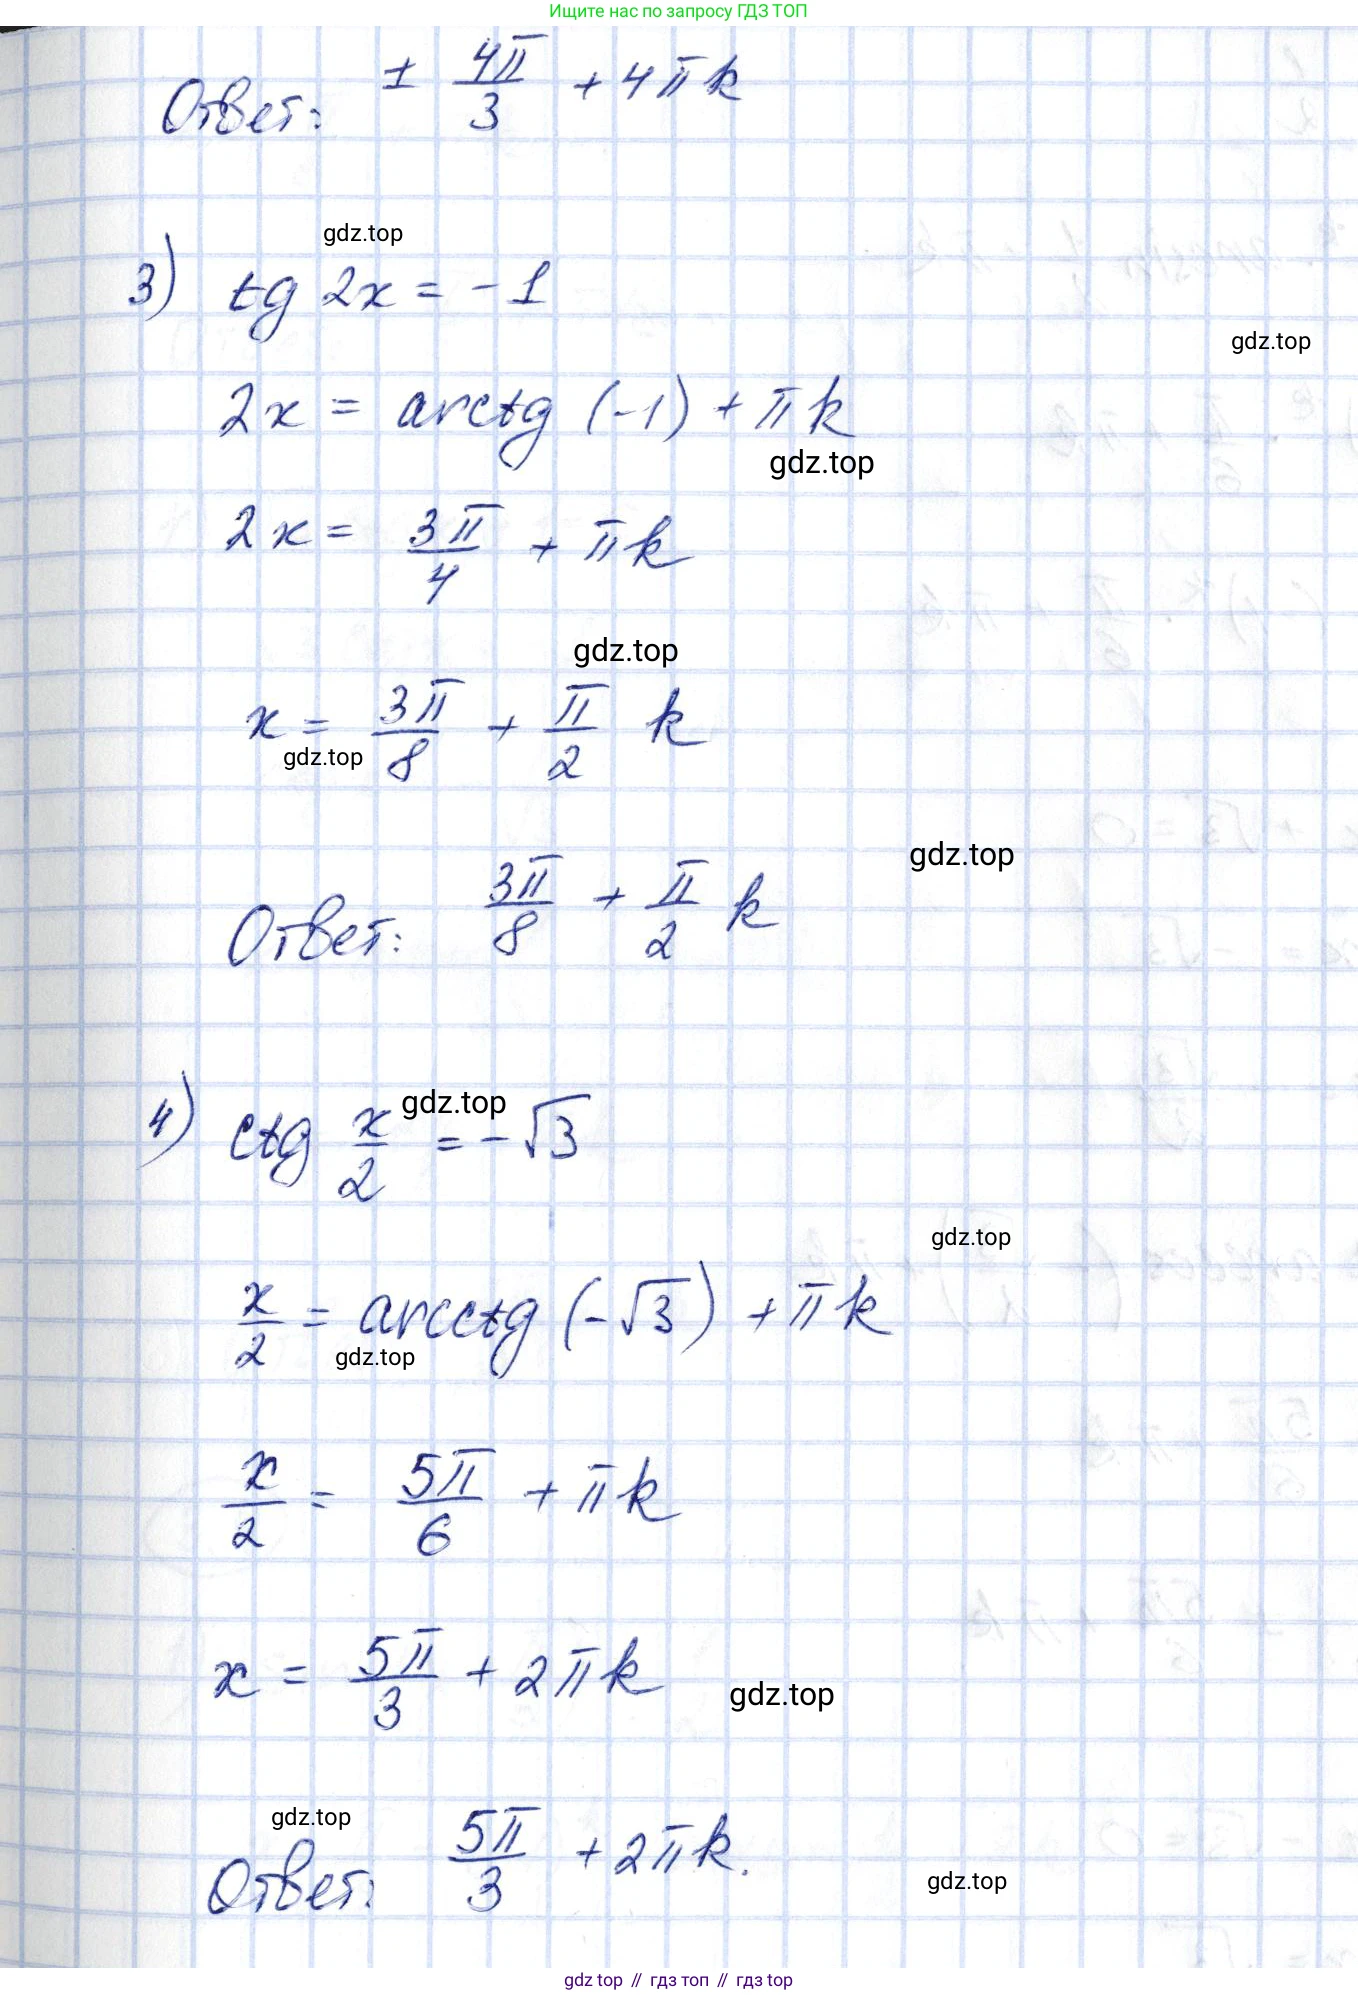 Ищите нас по запросу ГДЗ ТОП
Ответ: ± 4π/3 + 4πk
gdz.top
3) tg 2x = -1
gdz.top
2x = arctg (-1) + πk
gdz.top
2x = 3π/4 + πk
gdz.top
x = 3π/8 + π/2 k
gdz.top
gdz.top
Ответ: 3π/8 + π/2 k
gdz.top
4) ctg x/2 = -√3
gdz.top
x/2 = arcctg (-√3) + πk
gdz.top
x/2 = 5π/6 + πk
x = 5π/3 + 2πk
gdz.top
gdz.top
Ответ: 5π/3 + 2πk.
gdz.top
gdz top // гдз топ // гдз top